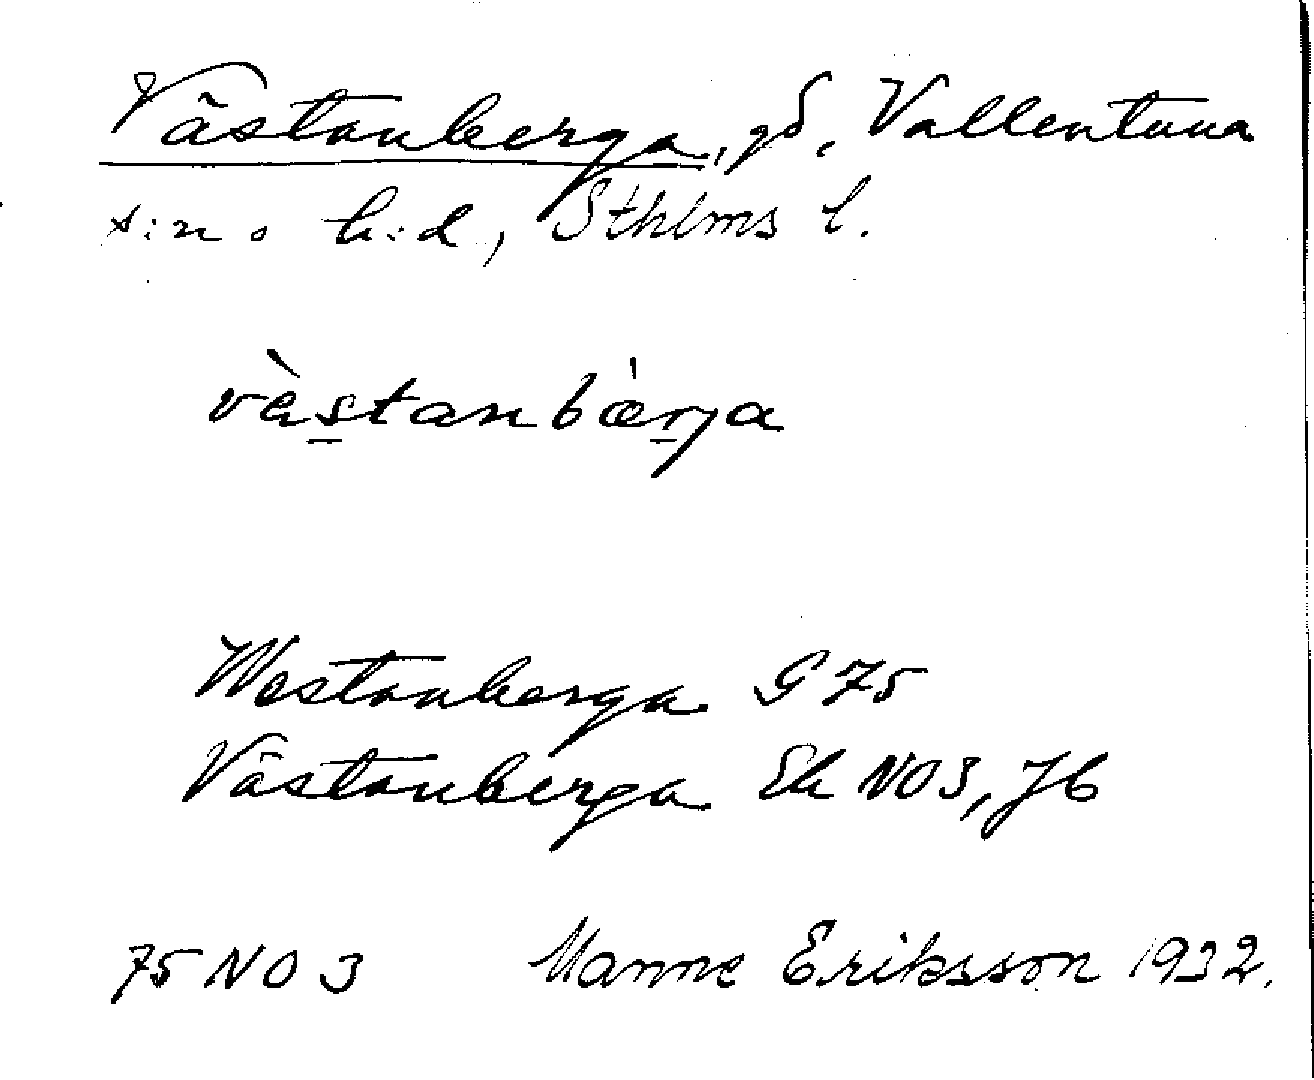 Västanberga, gd, Vallentuna
s:n o h:d, Sthlms l.
vàstanbæ̀rja
Westanberga G 75
Västanberga Ek NO3, Jb
75 NO 3 Manne Eriksson 1932.